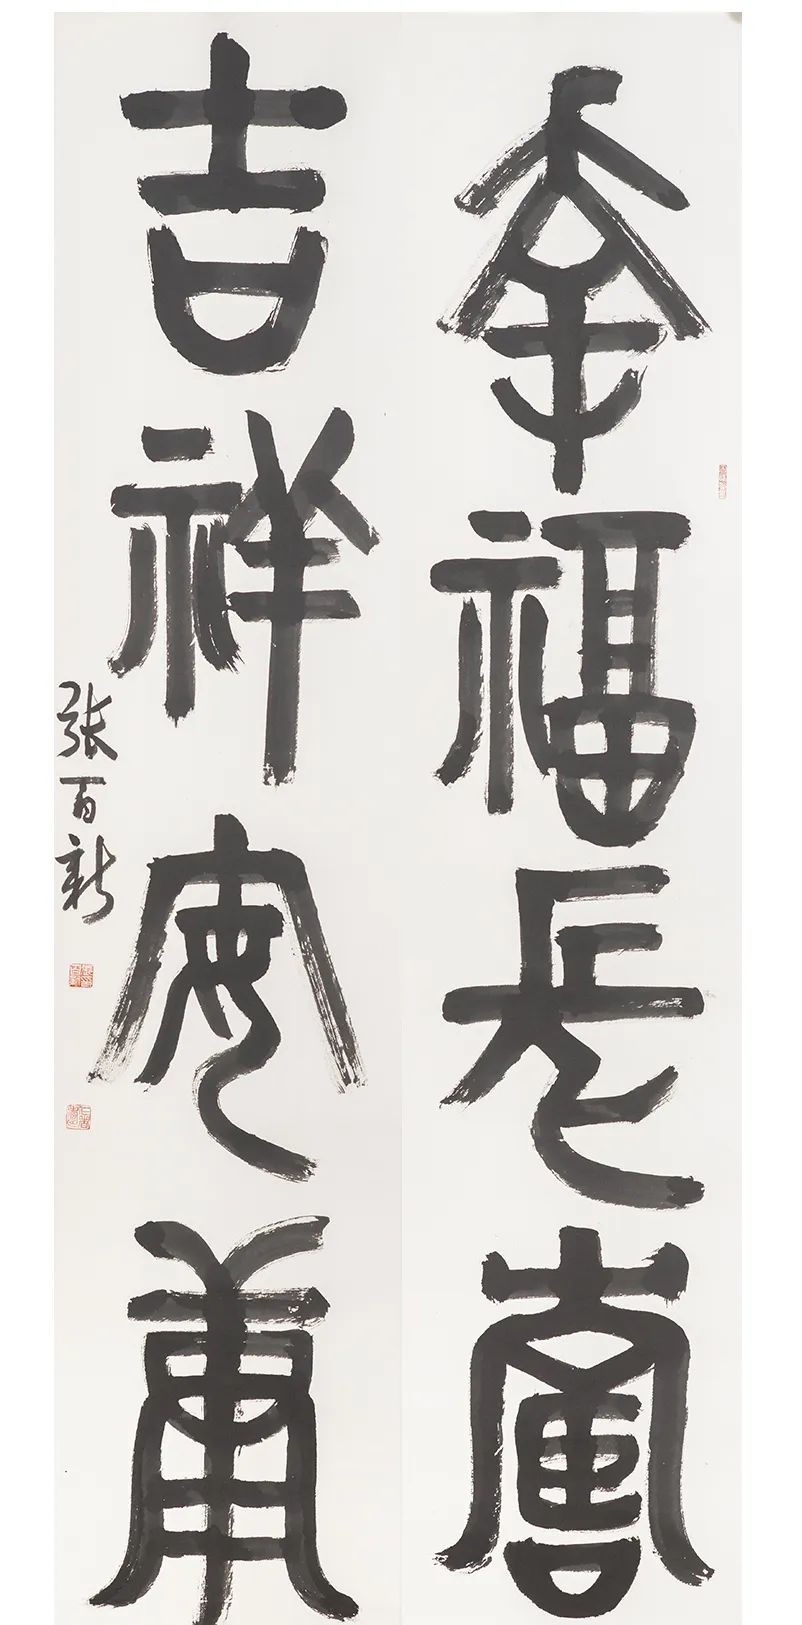 幸福長壽
吉祥安康
张百新